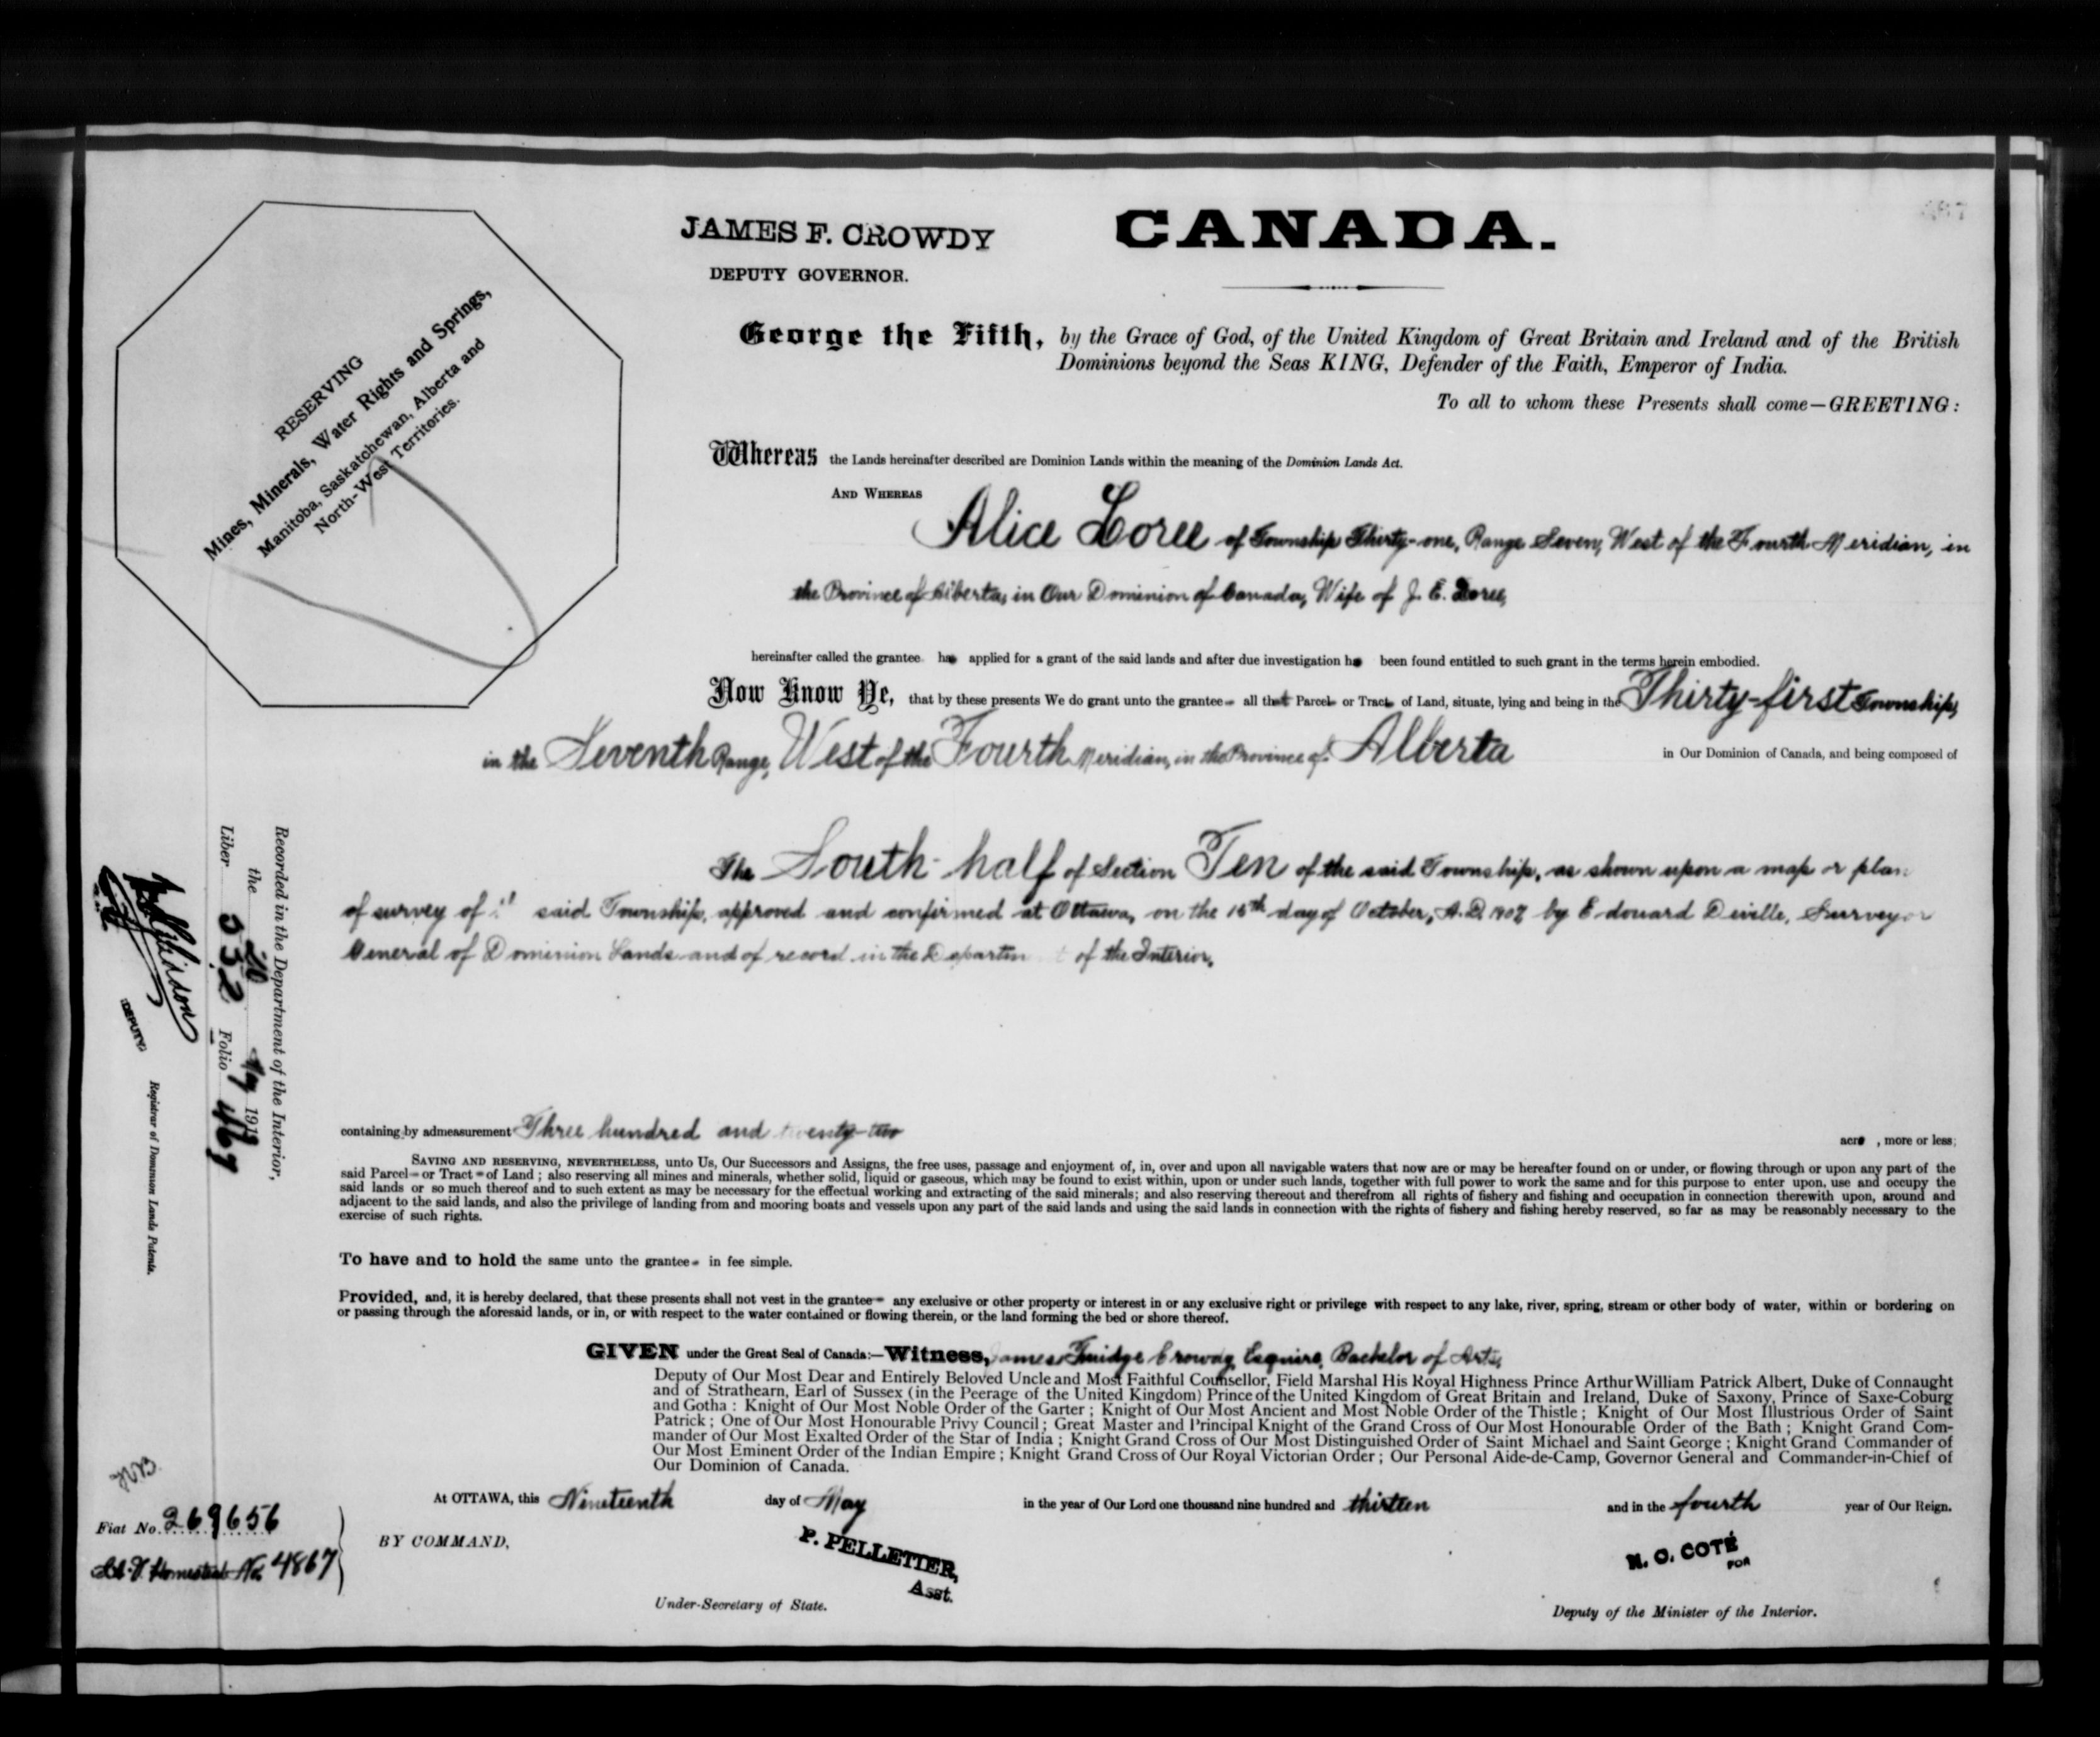 JAMES F. CROWDY
DEPUTY GOVERNOR.
CANADA.
RESERVING
Mines, Minerals, Water Rights and Springs,
Manitoba, Saskatchewan, Alberta and
North-West Territories.
George the Fifth, by the Grace of God, of the United Kingdom of Great Britain and Ireland and of the British
Dominions beyond the Seas KING, Defender of the Faith, Emperor of India.
To all to whom these Presents shall come—GREETING:
Whereas the Lands hereinafter described are Dominion Lands within the meaning of the Dominion Lands Act.
AND WHEREAS
Alice Loree of Township Thirty-one, Range Seven, West of the Fourth Meridian, in
the Province of Alberta, in Our Dominion of Canada, Wife of J. E. Loree,
hereinafter called the grantee has applied for a grant of the said lands and after due investigation has been found entitled to such grant in the terms herein embodied.
Now Know Ye, that by these presents We do grant unto the grantee all that Parcel or Tract of Land, situate, lying and being in the Thirty-first Township,
in the Seventh Range, West of the Fourth Meridian, in the Province of Alberta in Our Dominion of Canada, and being composed of
The South-half of Section Ten of the said Township, as shown upon a map or plan
of survey of said Township, approved and confirmed at Ottawa, on the 15th day of October, A.D. 1907 by Edouard Deville, Surveyor
General of Dominion Lands and of record in the Department of the Interior.
containing by admeasurement Three hundred and twenty-two acres, more or less;
SAVING AND RESERVING, NEVERTHELESS, unto Us, Our Successors and Assigns, the free uses, passage and enjoyment of, in, over and upon all navigable waters that now are or may be hereafter found on or under, or flowing through or upon any part of the
said Parcel or Tract of Land; also reserving all mines and minerals, whether solid, liquid or gaseous, which may be found to exist within, upon or under such lands, together with full power to work the same and for this purpose to enter upon, use and occupy the
said lands or so much thereof and to such extent as may be necessary for the effectual working and extracting of the said minerals; and also reserving thereout and therefrom all rights of fishery and fishing and occupation in connection therewith upon, around and
adjacent to the said lands, and also the privilege of landing from and mooring boats and vessels upon any part of the said lands and using the said lands in connection with the rights of fishery and fishing hereby reserved, so far as may be reasonably necessary to the
exercise of such rights.
To have and to hold the same unto the grantee in fee simple.
Provided, and, it is hereby declared, that these presents shall not vest in the grantee any exclusive or other property or interest in or any exclusive right or privilege with respect to any lake, river, spring, stream or other body of water, within or bordering on
or passing through the aforesaid lands, or in, or with respect to the water contained or flowing therein, or the land forming the bed or shore thereof.
GIVEN under the Great Seal of Canada:—Witness, James Fuidge Crowdy Esquire, Bachelor of Arts,
Deputy of Our Most Dear and Entirely Beloved Uncle and Most Faithful Counsellor, Field Marshal His Royal Highness Prince Arthur William Patrick Albert, Duke of Connaught
and of Strathearn, Earl of Sussex (in the Peerage of the United Kingdom) Prince of the United Kingdom of Great Britain and Ireland, Duke of Saxony, Prince of Saxe-Coburg
and Gotha: Knight of Our Most Noble Order of the Garter; Knight of Our Most Ancient and Most Noble Order of the Thistle; Knight of Our Most Illustrious Order of Saint
Patrick; One of Our Most Honourable Privy Council; Great Master and Principal Knight of the Grand Cross of Our Most Honourable Order of the Bath; Knight Grand Com-
mander of Our Most Exalted Order of the Star of India; Knight Grand Cross of Our Most Distinguished Order of Saint Michael and Saint George; Knight Grand Commander of
Our Most Eminent Order of the Indian Empire; Knight Grand Cross of Our Royal Victorian Order; Our Personal Aide-de-Camp, Governor General and Commander-in-Chief of
Our Dominion of Canada.
At OTTAWA, this Nineteenth day of May in the year of Our Lord one thousand nine hundred and thirteen and in the fourth year of Our Reign.
BY COMMAND,
P. PELLETIER,
Asst.
Under-Secretary of State.
N. O. COTÉ
FOR
Deputy of the Minister of the Interior.
Fiat No. 269656
Homestead No. 4867
Recorded in the Department of the Interior,
the 20 1913
Liber 532 Folio 467
DEPUTY
Registrar of Dominion Lands Patents.